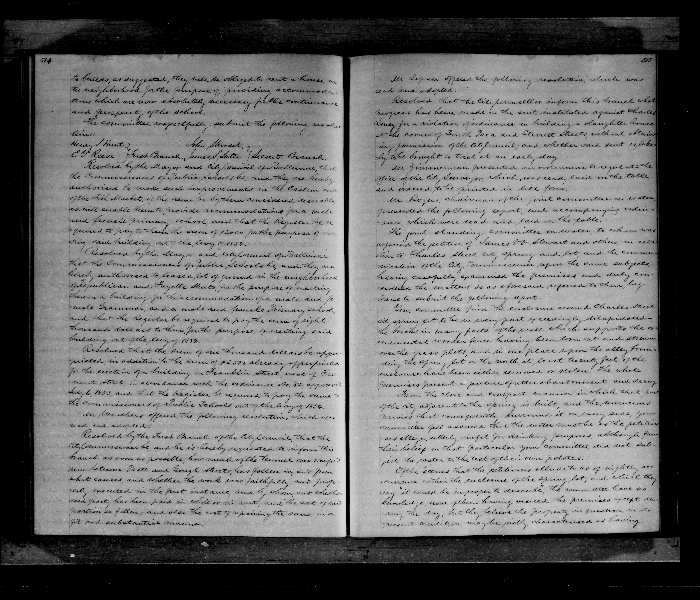 514
to build, as suggested, they will be obliged to rent a house in
the neighborhood for the purpose of providing accommoda-
tions which are now absolutely necessary for the continuance
and prosperity of the school.
The committee respectfully submit the following resolu-
tions.
Henry
John Stewart
C. D. Reese First Branch, James Second Branch
Resolved by the Mayor and City Council of Baltimore, that
the Commissioners of Public Schools be and they are hereby
authorized to make such improvements in the Eastern
as will enable them to provide accommodations for a male
and female primary school, and that the Register be re-
quired to pay to them the sum of for the purpose of
said building out of the levy of 1854.
Resolved by the Mayor and City Council of Baltimore
that the Commissioners of Public Schools be and they are
hereby authorized to lease a lot of ground in the neighborhood
of Republican and Fayette Streets for the purpose of erecting
thereon a building for the accommodation of a male and fe-
male Grammar and a male and female Primary school,
and that the Register be required to pay the sum of eight
thousand dollars to them for the purpose of erecting said
building out of the levy of 1854.
Resolved that the sum of one thousand dollars be appro-
priated in addition to the sum of already appropriated
for the erection of a building on Franklin street west of
street, in accordance with the ordinance No. approved
1853 and that the Register be required to pay the same to
the Commissioners of Public Schools out of the levy of 1854.
Mr. offered the following resolution, which was
read and adopted.
Resolved by the First Branch of the City Council, that the
City Commissioner be and he is hereby requested to inform this
branch as soon as possible how much of the tunnel
between and Gough Streets, has fallen in and from
what causes, and whether the work was faithfully and prop-
erly executed in the first instance, and by whom, and whether
such part has been paid in whole or in part and the cost of said
portion so fallen, and also the cost of repairing the same in a
fit and substantial manner.
515
Mr. offered the following resolution, which was
read and adopted.
Resolved that the City Counsellor inform this branch what
progress had been made in the suit instituted against Charles
for a violation of ordinance in building a slaughter house
at the corner of and Streets without obtaining
permission of the City Council, and whether said suit
be brought to trial at an early day.
Mr. Zimmerman presented an ordinance to regulate the
office of the City which was read, laid on the table
and ordered to be printed in bill form.
Mr. chairman of the joint committee on water
presented the following report, and accompanying resolu-
tion, which were read and laid on the table.
The joint standing committee on water to whom was
referred the petition of James Stewart and others in rela-
tion to Charles street city spring and lot and the commu-
nication of the City Commissioner upon the same subject
having carefully examined the premises and duly con-
sidered the matters so as aforesaid referred to them beg
leave to submit the following report.
Your committee find the enclosure around Charles street
spring lot to be in every part exceedingly dilapidated
the bricks in many parts of the which supports the or-
namental wooden fence having been torn out and strewn
over the grass plots, and in one place upon the alley border-
ing the spring lot on the north at least twenty feet of the
enclosure have been either removed or stolen. The whole
premises present a picture of utter abandonment and decay.
From the close and compact manner in which that part
of the city adjacent to the spring is built, and the numerous
that consequently surround it on every side, your
committee feel assured that the water must be as the petition-
ers allege, utterly unfit for drinking purposes although from
their belief in that particular your committee did not sub-
ject the water to the test of their own palates.
Of the scenes that the petitioners allude to as of nightly oc-
currence within the enclosure of the spring lot, and which they
say it would be improper to describe, the committee have no
knowledge never having visited the premises except du-
ring the day, but they believe the property in question in its
present condition may be justly characterised as having